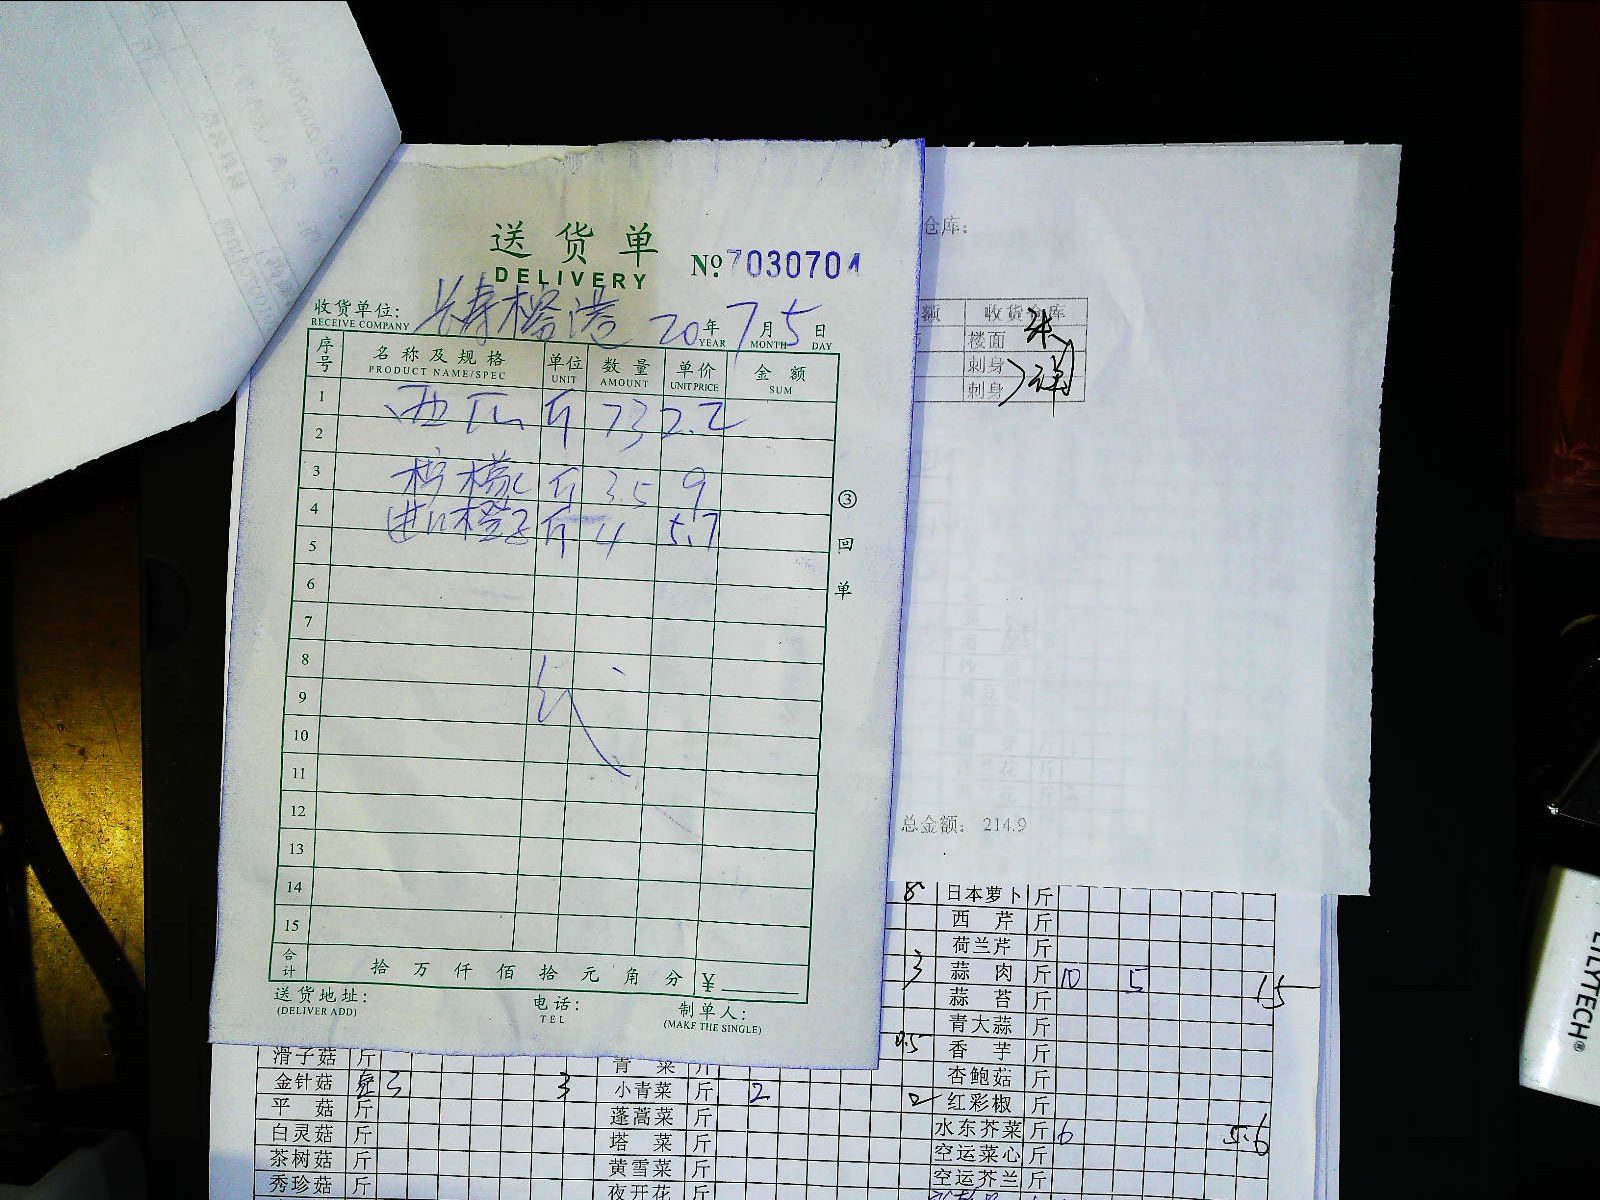 送货单
DELIVERY
№ 7030704
收货单位: 长寿榕港 20年 7月 5日
RECEIVE COMPANY YEAR MONTH DAY
序号 名称及规格 单位 数量 单价 金额
PRODUCT NAME/SPEC UNIT AMOUNT UNIT PRICE SUM
1 西瓜 斤 73 2.2
2
3 柠檬 斤 3.5 9
4 进口橙子 斤 4 5.7
5
6
7
8
9
10
11
12
13
14
15
合计 拾 万 仟 佰 拾 元 角 分 ¥
送货地址: 电话: 制单人:
(DELIVER ADD) TEL (MAKE THE SINGLE)
③ 回单
仓库:
额 收货仓库
楼面
刺身
刺身
总金额: 214.9
8 日本萝卜 斤
西芹 斤
荷兰芹 斤
3 蒜肉 斤 10 5 15
蒜苔 斤
青大蒜 斤
香芋 斤
杏鲍菇 斤
2 红彩椒 斤
水东芥菜 斤 6 5.6
空运菜心 斤
空运芥兰 斤
滑子菇 斤 青菜 斤
金针菇 3 3 小青菜 斤 2
平菇 斤 蓬蒿菜 斤
白灵菇 斤 塔菜 斤
茶树菇 斤 黄雪菜 斤
秀珍菇 斤 夜开花 斤
LILYTECH®